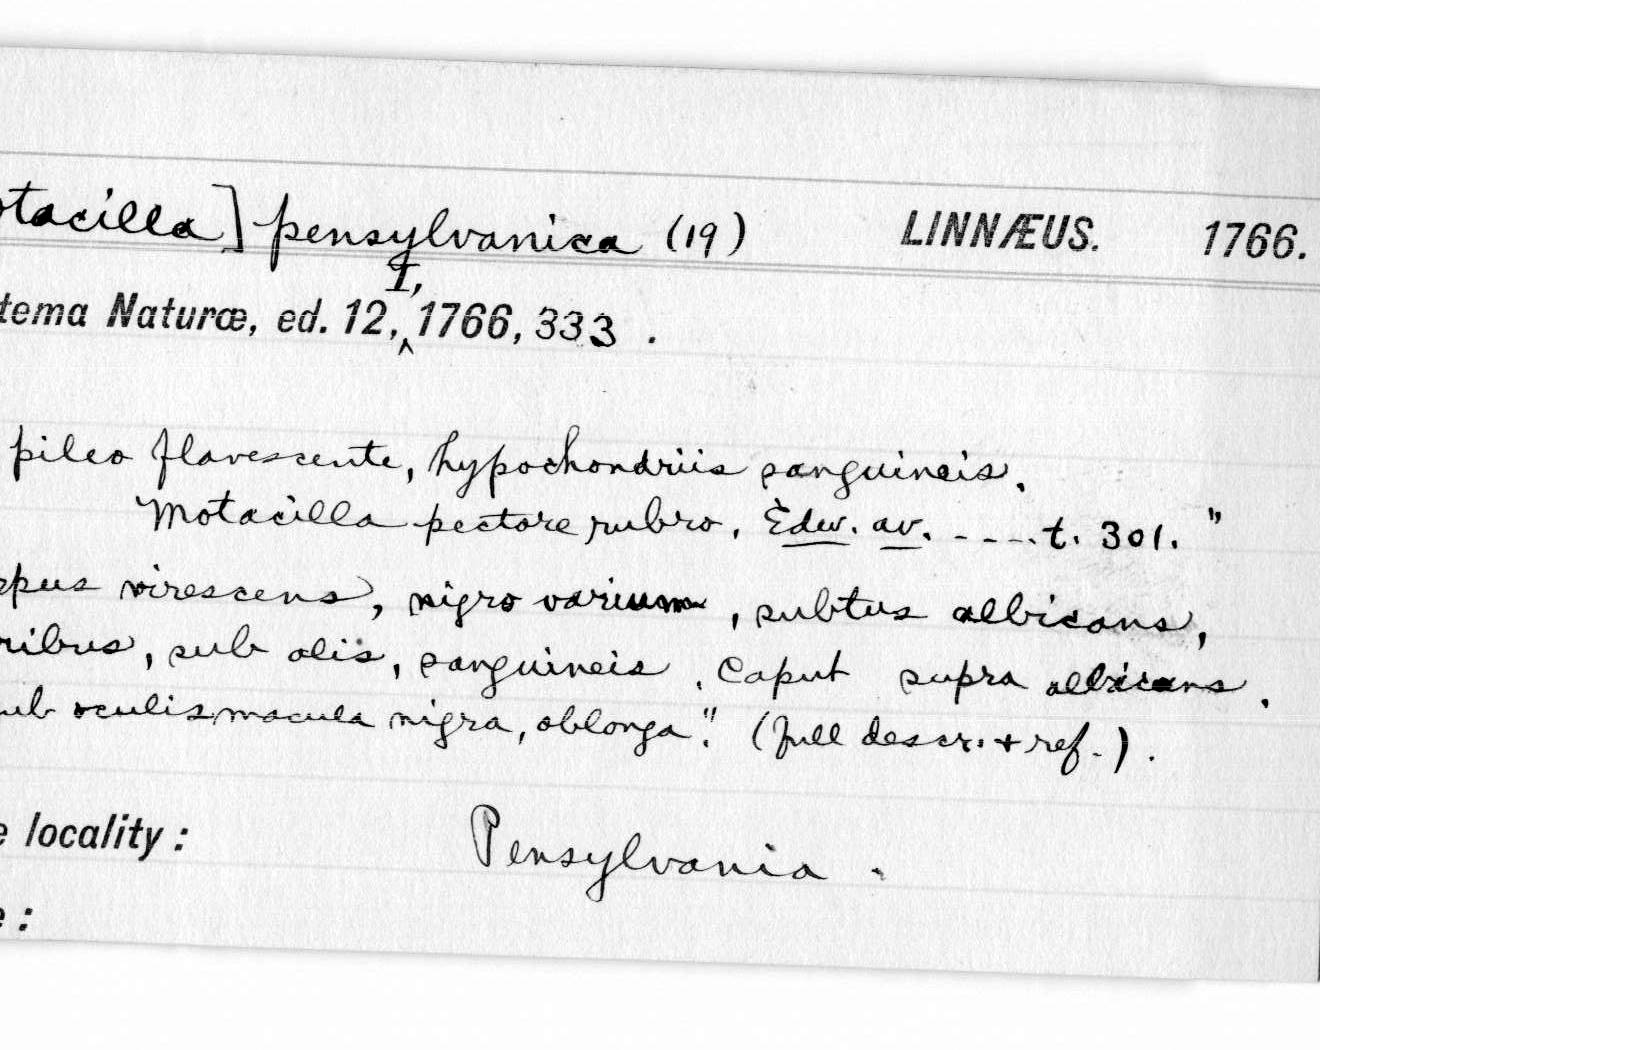 otacilla] pensylvanica (19) LINNÆUS. 1766.
I,
tema Naturæ, ed. 12,^ 1766, 333 .
pileo flavescente, hypochondriis sanguineis.
Motacilla pectore rubro. Edw. av. - - - -. t. 301."
rpus virescens, nigro varium, subtus albicans,
ribus, sub alis, sanguineis. Caput supra albicans.
ub oculis macula nigra, oblonga." (full descr. + ref.).
e locality: Pensylvania.
e: